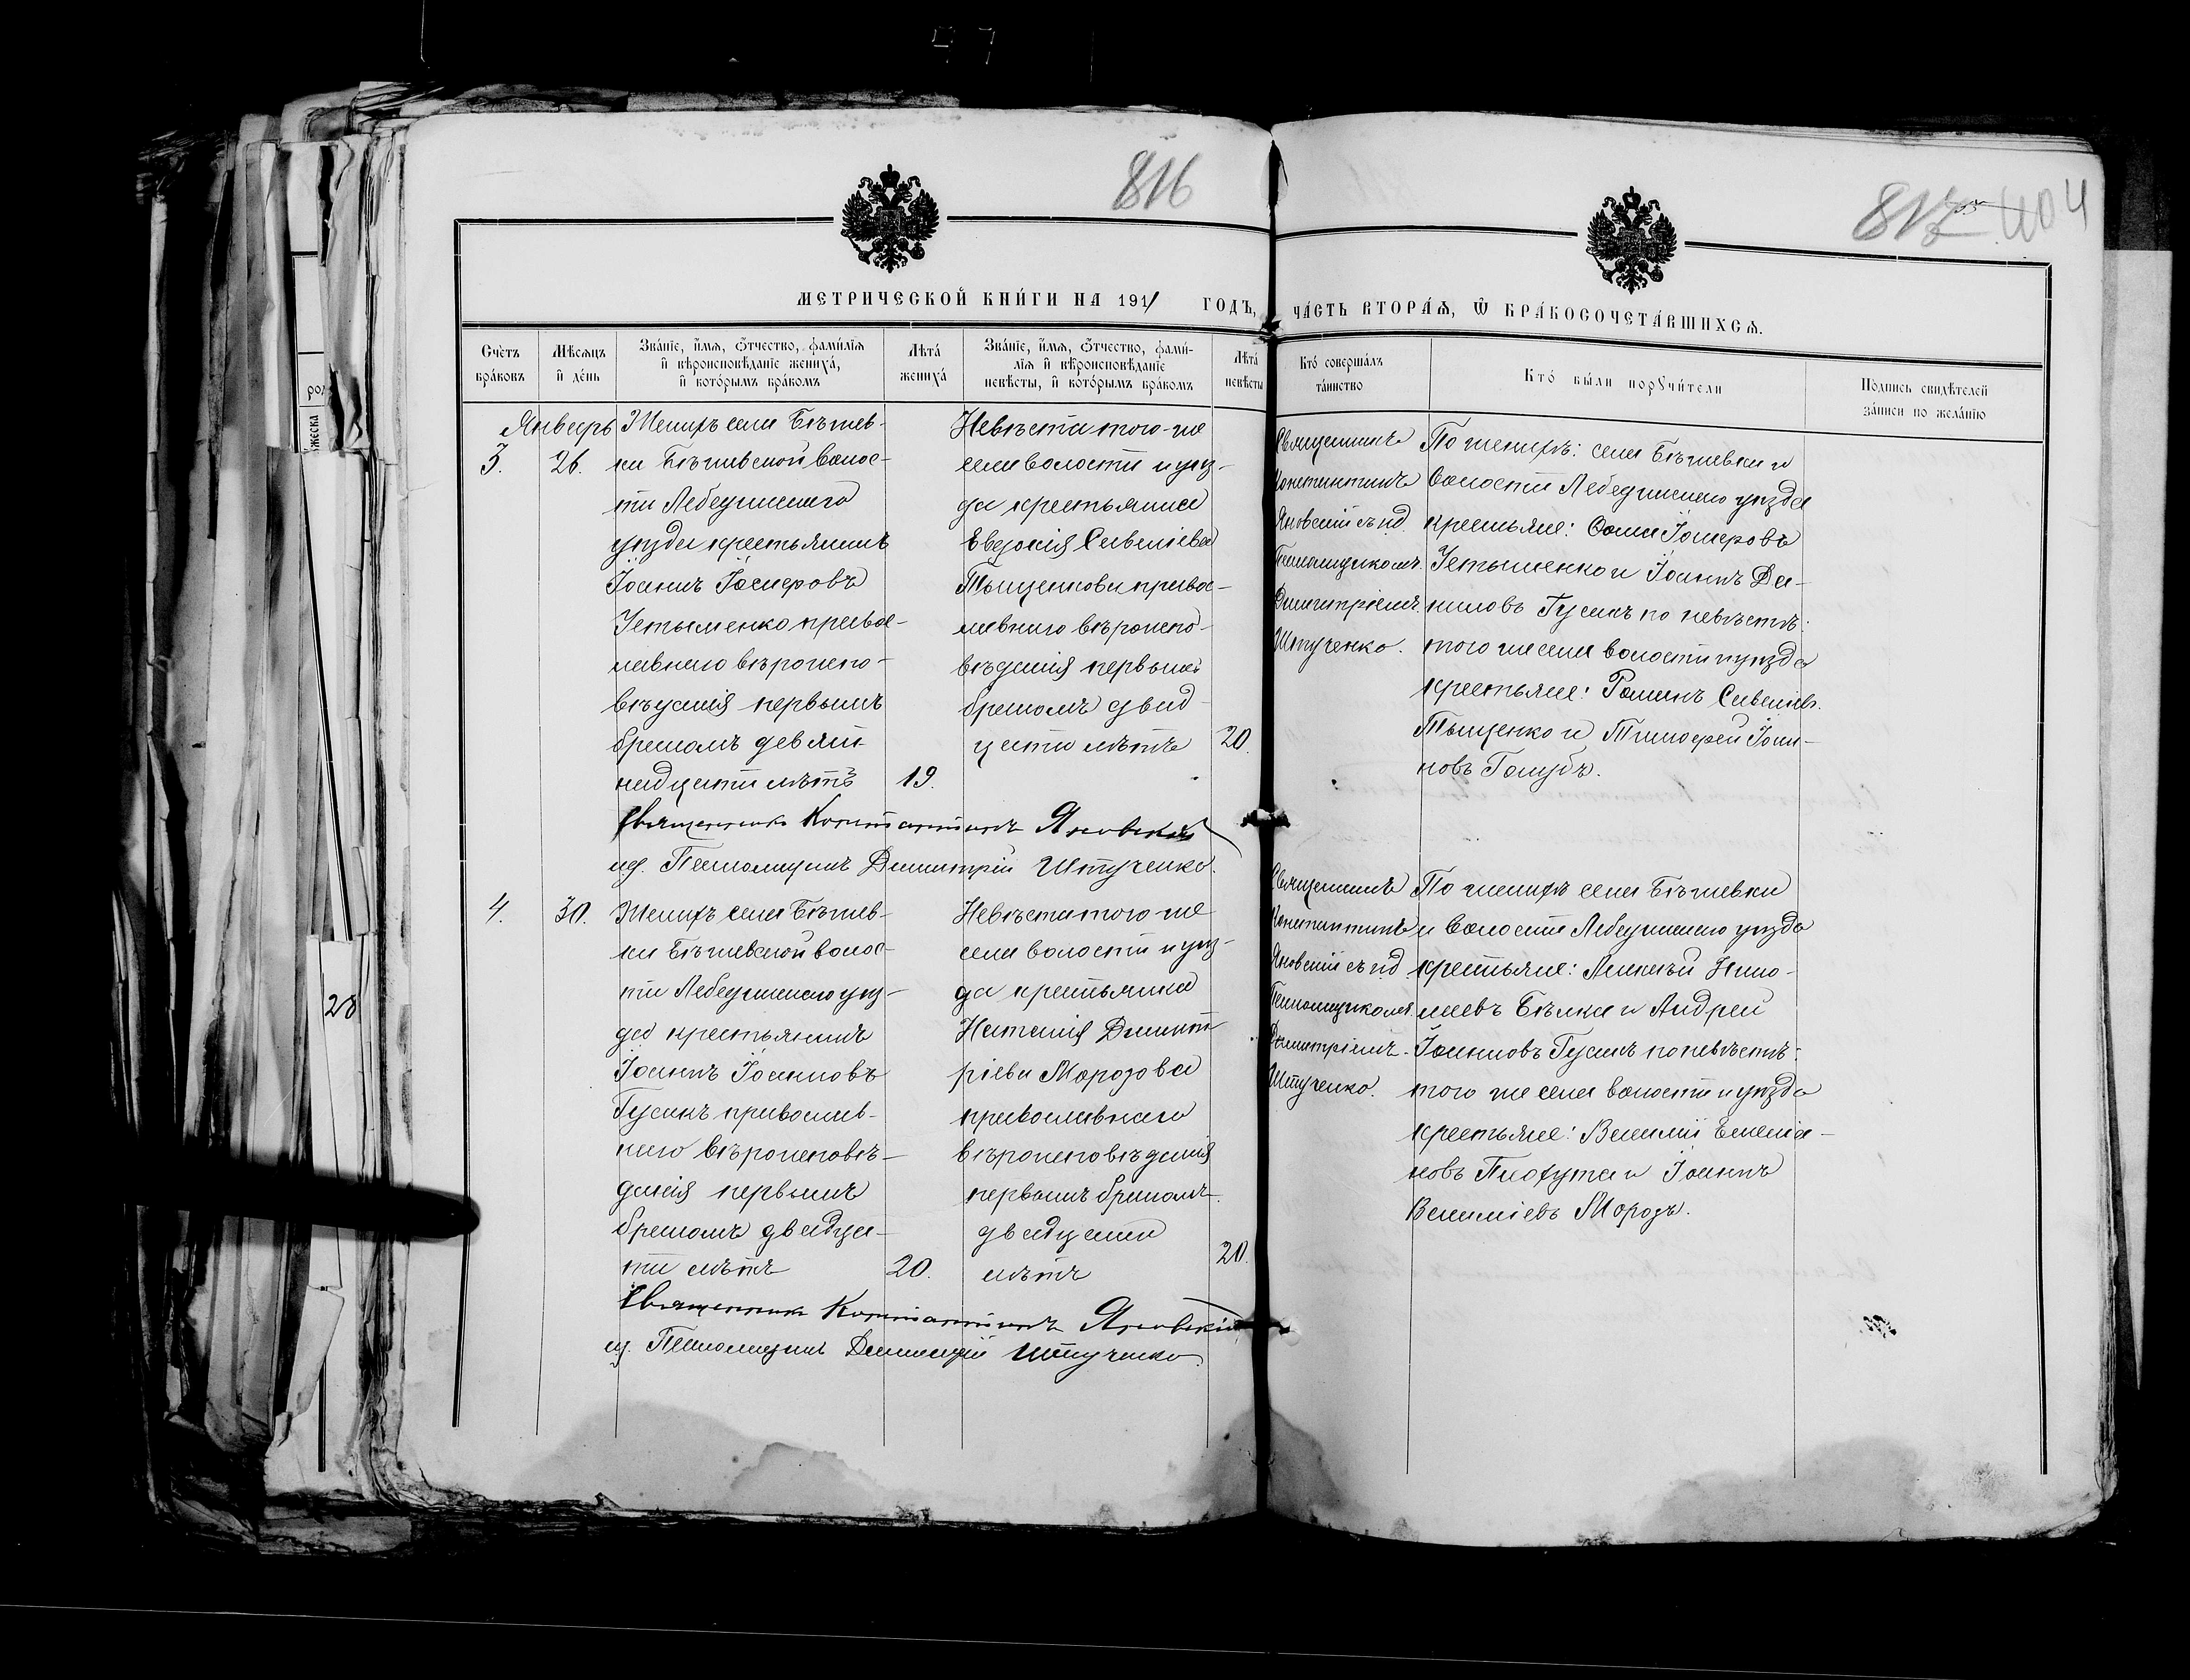 816
817
404
МЕТРИЧЕСКОЙ КНИГИ НА 1911 ГОДЪ,
ЧАСТЬ ВТОРАЯ, Ѿ БРАКОСОЧЕТАВШИХСЯ.
Счетъ браковъ
Мѣсяцъ и день
Званіе, имя, ѻтчество, фамилія
и вѣроисповѣданіе жениха,
и которымъ бракомъ
Лѣта
жениха
Званіе, имя, ѻтчество, фами-
лія и вѣроисповѣданіе
невѣсты, и которымъ бракомъ
Лѣта
невѣсты
Кто совершалъ
таинство
Кто были поручители
Подпись свидѣтелей
записи по желанію
Январь
3.
26.
Женихъ села Бѣжев-
ки Бѣжевской волос-
ти Лебединскаго
уѣзда крестьянинъ
Іоаннъ
Устименко правос-
лавнаго вѣроиспо-
вѣданія первымъ
бракомъ девят-
надцати лѣтъ
19.
Невѣста того-же
села волости и уѣз-
да крестьянка
Евдокія Савеліева
Тыщенкова правос-
лавнаго вѣроиспо-
вѣданія первымъ
бракомъ двад-
цати лѣтъ
20.
Священникъ
Константинъ
Яновскій съ и.д.
Псаломщикомъ
Димитріемъ
Штученко.
По женихѣ: села Бѣжевки и
волости Лебединскаго уѣзда
крестьяне: Фома
и Іоаннъ Да-
ниловъ Гусакъ по невѣстѣ:
того же села волости и уѣзда
крестьяне: Романъ Савеліевъ
Тыщенко и Тимофей Іоан-
новъ Голубъ.
Священникъ Константинъ Яновскій
и.д. Псаломщикъ Димитрій Штученко.
4.
30.
Женихъ села Бѣжев-
ки Бѣжевской волос-
ти Лебединскаго уѣз-
да крестьянинъ
Іоаннъ Іоанновъ
Гусакъ православ-
наго вѣроисповѣ-
данія первымъ
бракомъ двадца-
ти лѣтъ
20.
Невѣста того же
села волости и уѣз-
да крестьянка
Наталія Димит-
ріева Морозова
православнаго
вѣроисповѣданія
первымъ бракомъ
двадцати
лѣтъ
20.
Священникъ
Константинъ
Яновскій съ и.д.
Псаломщикомъ
Димитріемъ
Штученко.
По женихѣ села Бѣжевки
и волости Лебединскаго уѣзда
крестьяне: Алексѣй Нико-
лаевъ Бѣлка и Андрей
Іоанновъ Гусакъ по невѣстѣ:
того же села волости и уѣзда
крестьяне: Василій Емелія-
новъ и Іоаннъ
Василіевъ Морозъ.
Священникъ Константинъ Яновскій
и.д. Псаломщикъ Димитрій Штученко.
28